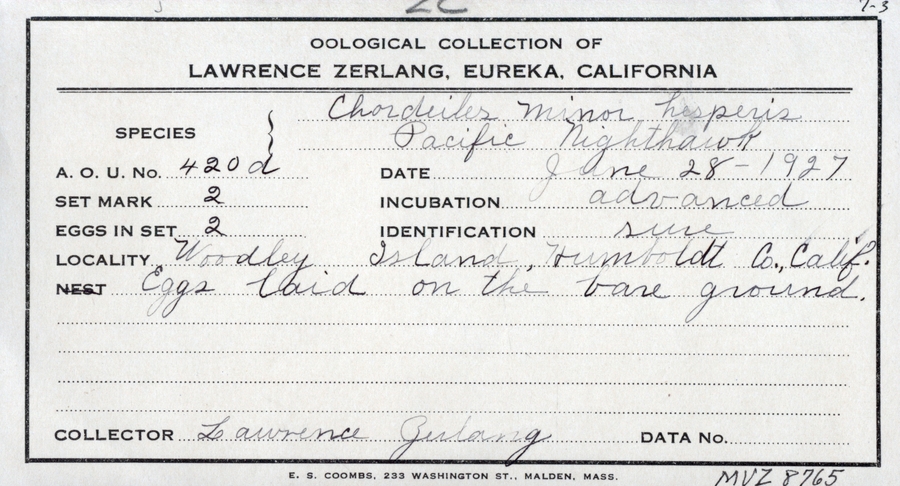 7-3
OOLOGICAL COLLECTION OF
LAWRENCE ZERLANG, EUREKA, CALIFORNIA
SPECIES Chordeiles minor hesperis
Pacific Nighthawk
A. O. U. No. 420d DATE June 28-1927
SET MARK 2 INCUBATION advanced
EGGS IN SET 2 IDENTIFICATION sure
LOCALITY Woodley Island, Humboldt Co., Calif.
NEST Eggs laid on the bare ground.
COLLECTOR Lawrence Zerlang DATA No.
E. S. COOMBS, 233 WASHINGTON ST., MALDEN, MASS.
MVZ 8765